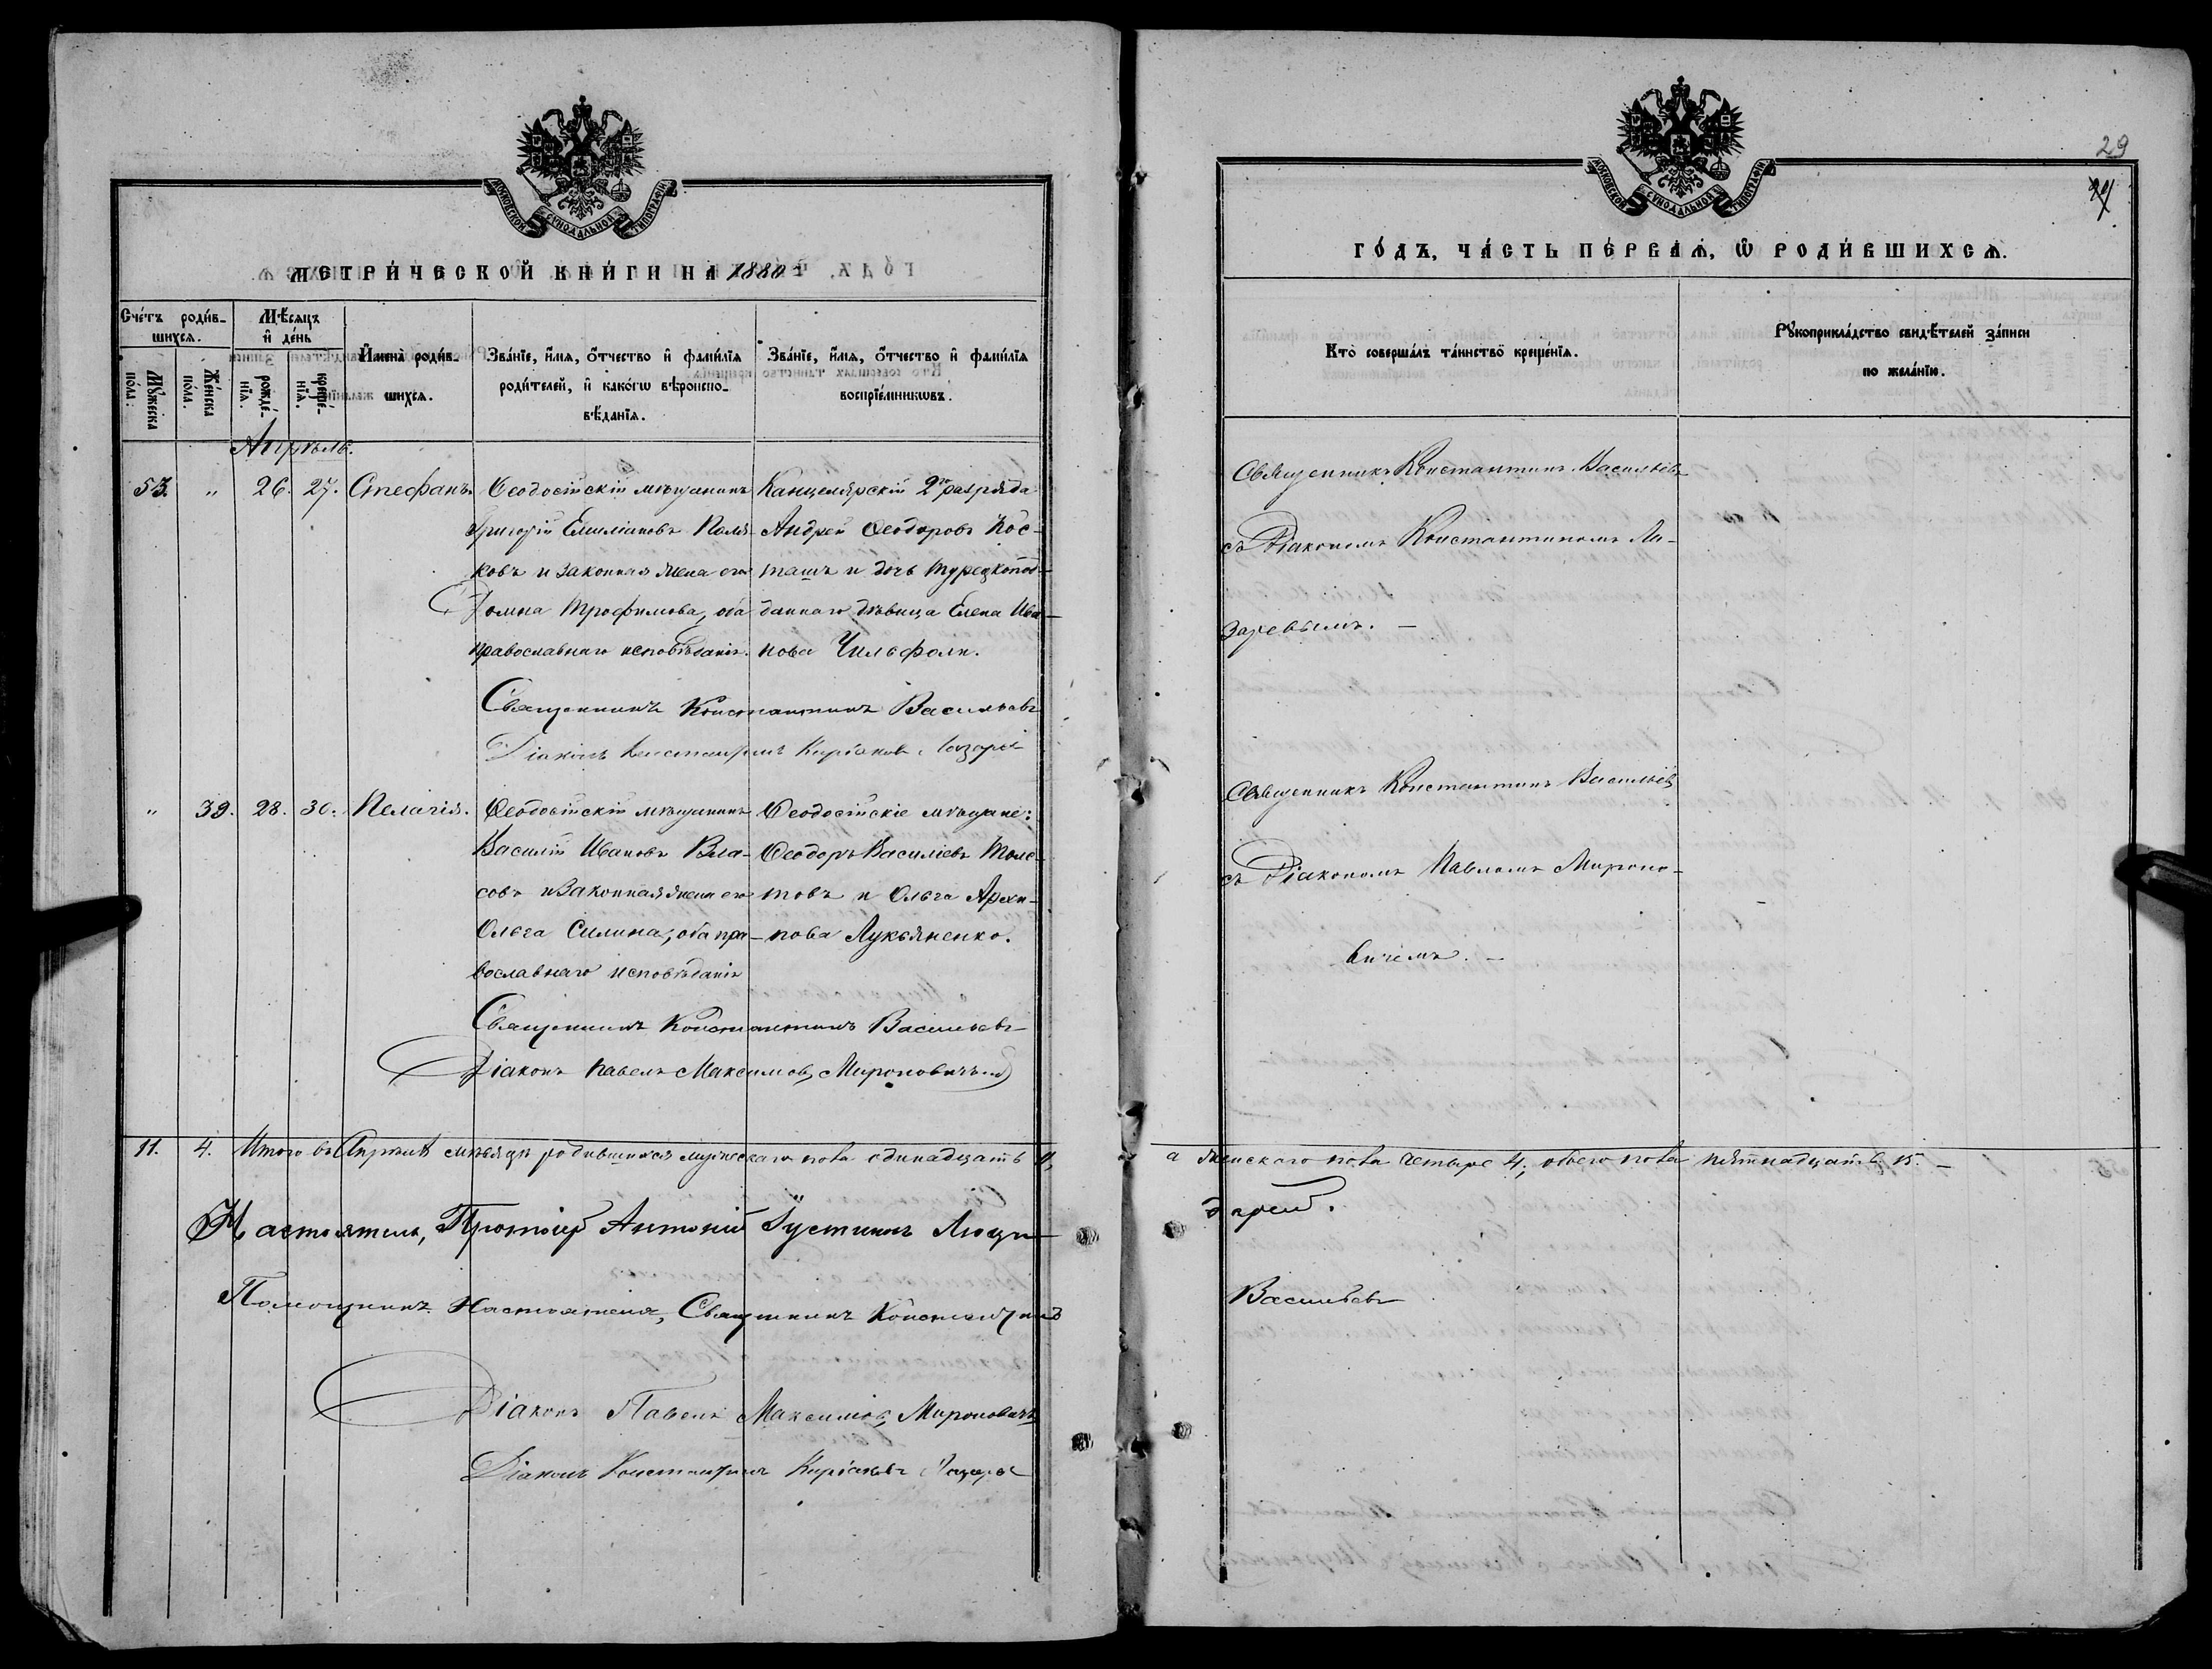 МОСКОВСКОЙ СѴНОДАЛЬНОЙ ТИПОГРАФІИ
МЕТРИ́ЧЕСКОЙ КНИ́ГИ НА 1880
Сче́тъ роди́в-
шихсѧ.
Мꙋ́жеска пола.
Же́нска пола.
Мѣ́сѧцъ
и҆ де́нь
рожде́-
нїѧ.
креще́-
нїѧ.
И҆мена̀ роди́в-
шихсѧ.
Зва́нїе, и҆́мѧ, ѻ҆́тчество и҆ фами́лїѧ
роди́телей, и҆ како́гѡ вѣроиспо-
вѣ́данїѧ.
Зва́нїе, и҆́мѧ, ѻ҆́тчество и҆ фами́лїѧ
воспрїе́мникѡвъ.
Апрѣль.
53. " 26. 27. Стефанъ.
Ѳеодосійскій мѣщанинъ
Григорій Емиліановъ Поля-
ковъ и законная жена его
Домна Трофимова, оба
православнаго исповѣданія.
Канцелярскій 2го разряда
Андрей Ѳеодоровъ Кос-
ташъ и дочь турецкопод-
даннаго дѣвица Елена Ива-
нова Чильфоли.
Священникъ Константинъ Васильевъ
Діаконъ Константинъ Киріаковъ Лазаревъ
" 39. 28. 30. Пелагія.
Ѳеодосійскій мѣщанинъ
Василій Ивановъ Вла-
совъ и законная жена его
Ольга Силина, оба пра-
вославнаго исповѣданія
Ѳеодосійскіе мѣщане:
Ѳеодоръ Василіевъ Толс-
товъ и Ольга Архи-
пова Лукьяненко.
Священникъ Константинъ Васильевъ
Діаконъ Павелъ Максимовъ Мироновичъ
11. 4. Итого въ Апрѣлѣ мѣсяцѣ родившихся мужескаго пола одинадцать 11,
Настоятель, Протоіер Антоній Іустинов Люци-
Помощникъ Настоятеля, Священникъ Константинъ
Діаконъ Павелъ Максимовъ Мироновичъ
Діаконъ Константинъ Киріаковъ Лазаревъ
29
ГО́ДЪ, ЧА́СТЬ ПЕ́РВАѦ, Ѡ҆ РОДИ́ВШИХСѦ.
МОСКОВСКОЙ СѴНОДАЛЬНОЙ ТИПОГРАФІИ
Кто̀ соверша́лъ та́инство креще́нїѧ.
Рꙋкоприкла́дство свидѣ́телей за́писи
по жела́нїю.
Священникъ Константинъ Васильевъ
съ Діакономъ Константиномъ Ла-
заревымъ. —
Священникъ Константинъ Васильевъ
съ Діакономъ Павломъ Мироно-
вичемъ. —
а женскаго пола четыре 4; обоего пола пятнадцать 15. —
дарскій.
Васильевъ